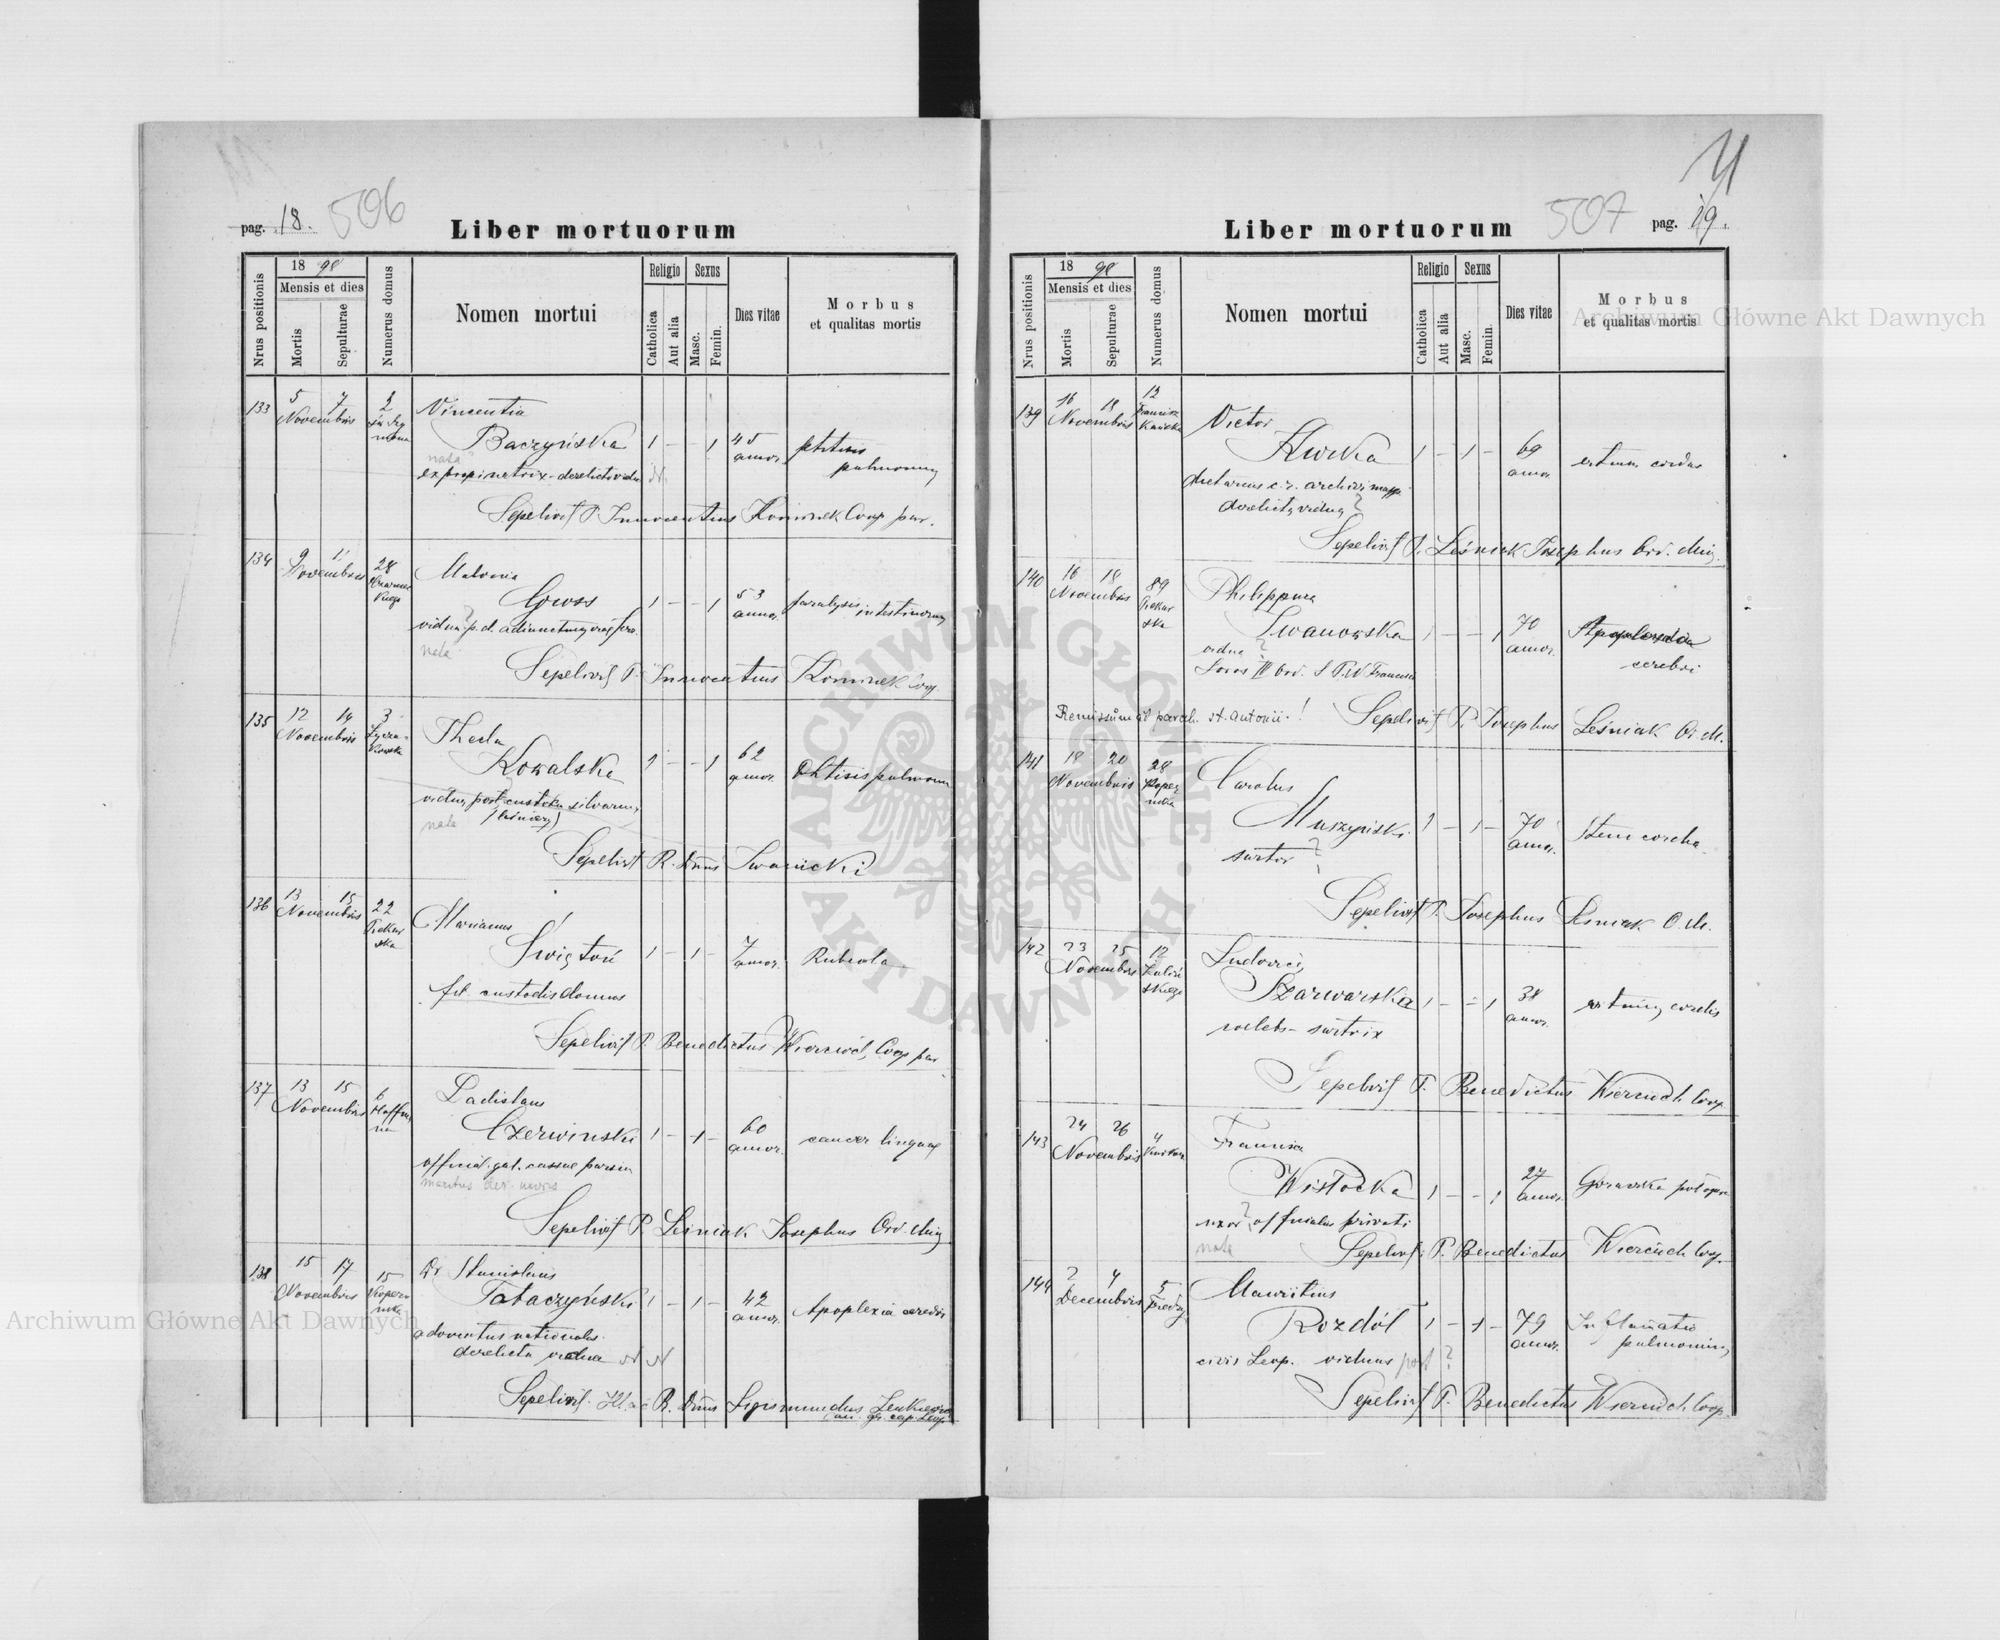 pag. 18.
506
Liber mortuorum
Nrus positionis
1898
Mensis et dies
Mortis
Sepulturae
Numerus domus
Nomen mortui
Religio
Catholica
Aut alia
Sexus
Masc.
Femin.
Dies vitae
Morbus
et qualitas mortis
133 5 7 Novembris 2
Vincentia
Baczyńska 1 – – 1 45 annor. phtisis pulmonum
nata
Sepelivit P. Innocentius Kominek Coop par.
134 9 11 Novembris 28
Gross 1 – – 1 53 annor. paralysis intestinorum
vidua p. d.
nata
Sepelivit P. Innocentius Kominek Coop.
135 12 14 Novembris 3 Łyczakowska
Thecla
Kowalska 1 – – 1 62 annor. Phtisis pulmonum
vidua post custodem silvarum
nata
Sepelivit R. Dnus Iwanicki
136 13 15 Novembris 22 Piekarska
Marianus
Świątoń 1 – 1 – 7 annor. Rubeola
fil. custodis domus
Sepelivit P. Benedictus Wierciuch, Coop par
137 13 15 Novembris 6 Hoffmana
Ladislaus
Czerwinski 1 – 1 – 60 annor. cancer linguae
official. gal. cassae parsim
maritus der. uxoris
Sepelivit P. Leśniak Josephus Ord. Min
138 15 17 Novembris 15 Kopernika
Dr Stanislaus
Tabaczyński 1 – 1 – 42 annor. Apoplexia cerebri
advocatus nationalis
derelicta vidua N N
Sepelivit R. Dnus Sigismundus
507
Liber mortuorum
pag. 19.
Nrus positionis
1898
Mensis et dies
Mortis
Sepulturae
Numerus domus
Nomen mortui
Religio
Catholica
Aut alia
Sexus
Masc.
Femin.
Dies vitae
Morbus
et qualitas mortis
139 16 18 Novembris 12
Victor
Hurka 1 – 1 – 69 annor. vitium cordis
dietarius c. r. archivi mapp.
derelicta vidua ?
Sepelivit P. Leśniak Josephus Ord. Min.
140 16 18 Novembris 89 Piekarska
Philippina
Iwanowska 1 – – 1 70 annor. Apoplexia cerebri
vidua ?
Remissum ad paroch. st. Antonii! Sepelivit P. Josephus Leśniak O. M.
141 18 20 Novembris 28 Kopernika
Carolus
Muszyński 1 – 1 – 70 annor.
sartor ?
Sepelivit P. Josephus Leśniak O. M.
142 23 25 Novembris 12
Ludovica
Szarwarska 1 – – 1 38 annor. vitium cordis
coelebs – sartrix
Sepelivit P. Benedictus Wierciuch Coop
143 24 26 Novembris 4
Francisca
Wisłocka 1 – – 1 27 annor.
uxor ? officialis privati
nata
Sepelivit P. Benedictus Wierciuch Coop.
144 2 4 Decembris 5 Fredry
Mauritius
Rozdół 1 – 1 – 79 annor. Inflamatio pulmonum
civis Leop. viduus post ?
Sepelivit P. Benedictus Wierciuch Coop.
Archiwum Główne Akt Dawnych
Archiwum Główne Akt Dawnych
ARCHIWUM GŁÓWNE AKT DAWNYCH